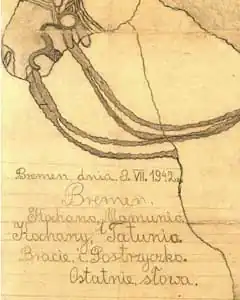 Bremen, dnia 2. VII. 1942.
Bremen.
Kochana, Mamunia.
Kochany, Tatunia
Bracie, i. Sostryczko.
Ostatnie, słowa.